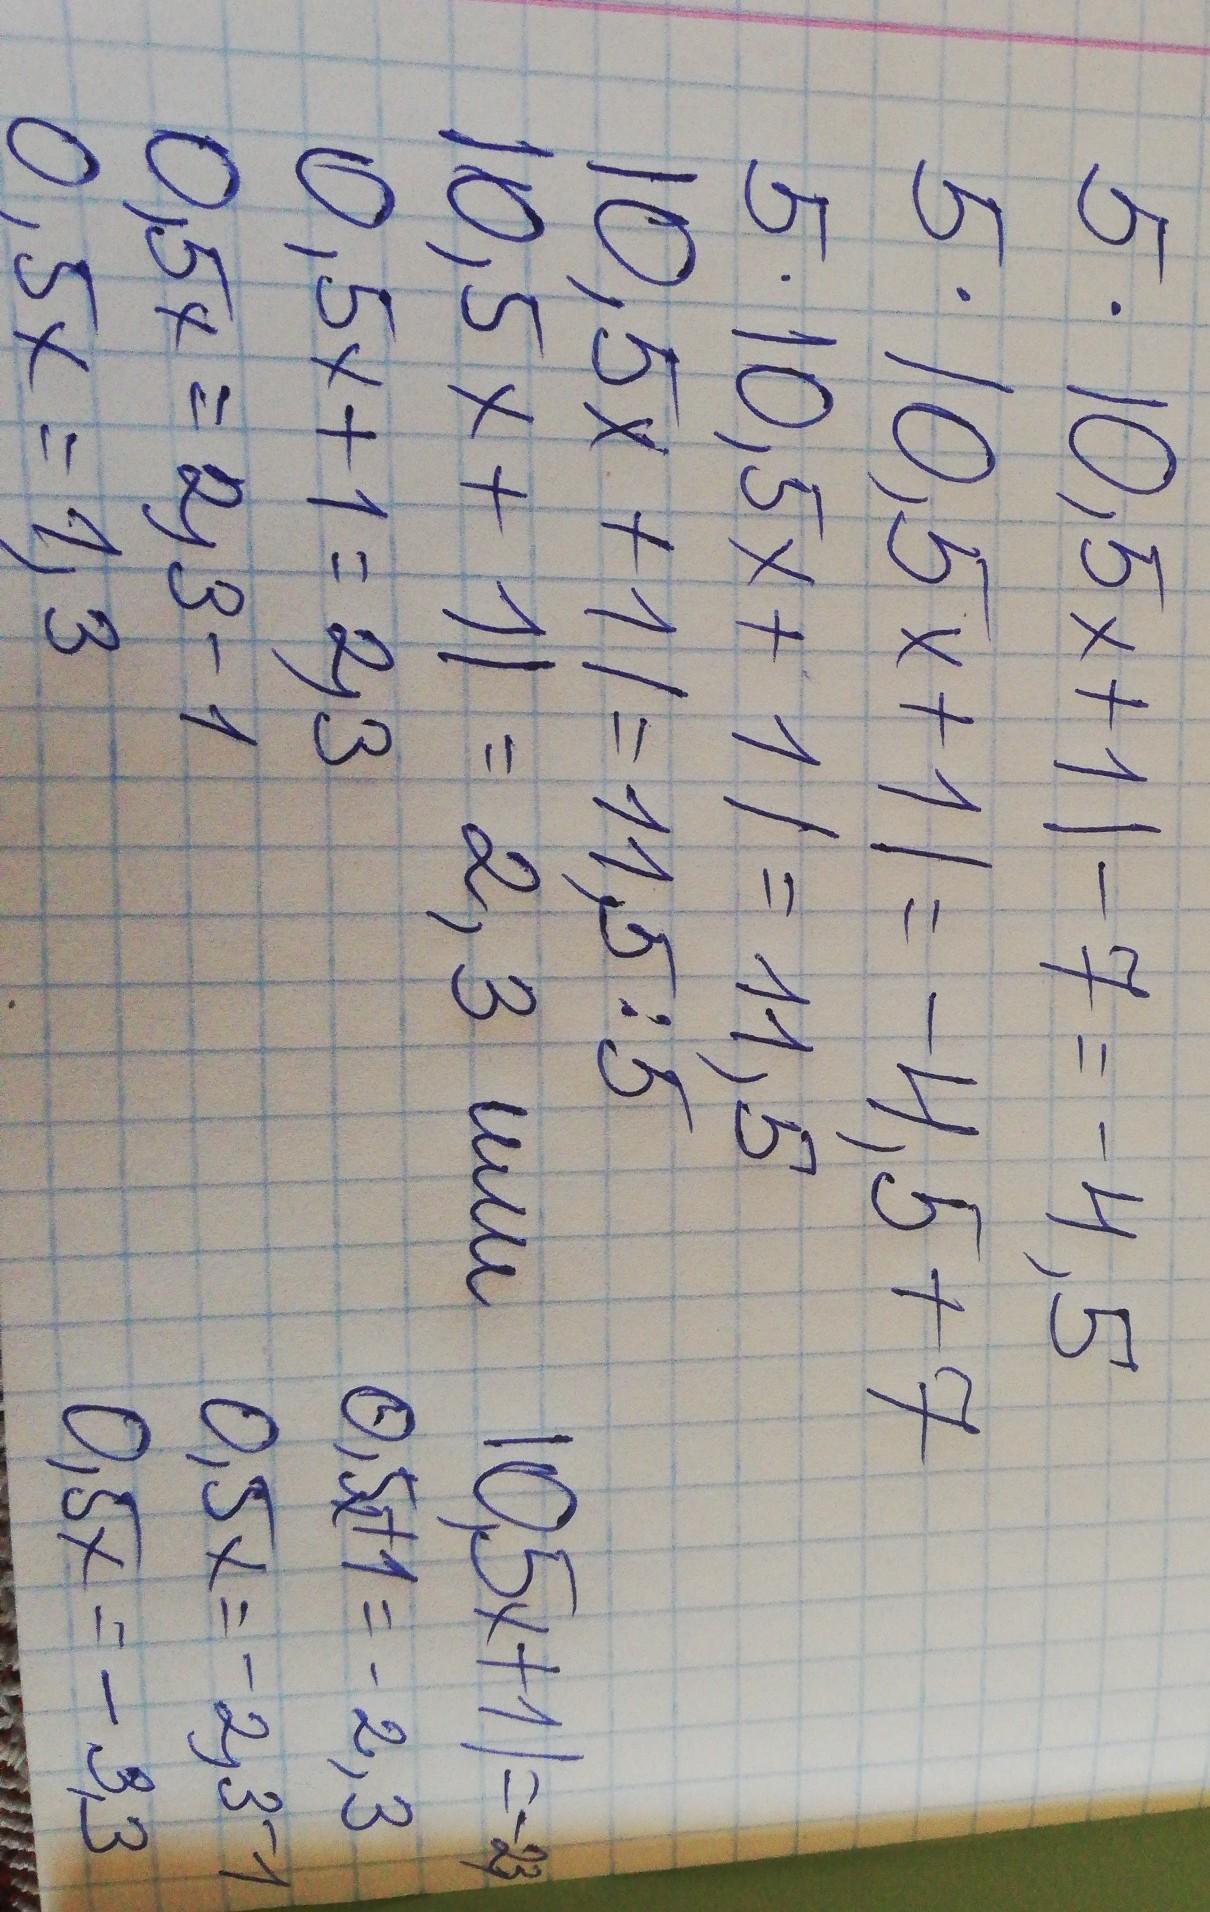 5 · |0,5x+1|-7=-4,5
5 · |0,5x+1|=-4,5+7
5 · |0,5x+1|=11,5
|0,5x+1|=11,5:5
|0,5x+1|=2,3 или |0,5x+1|=-2,3
0,5x+1=2,3 0,5x+1=-2,3
0,5x=2,3-1 0,5x=-2,3-1
0,5x=1,3 0,5x=-3,3